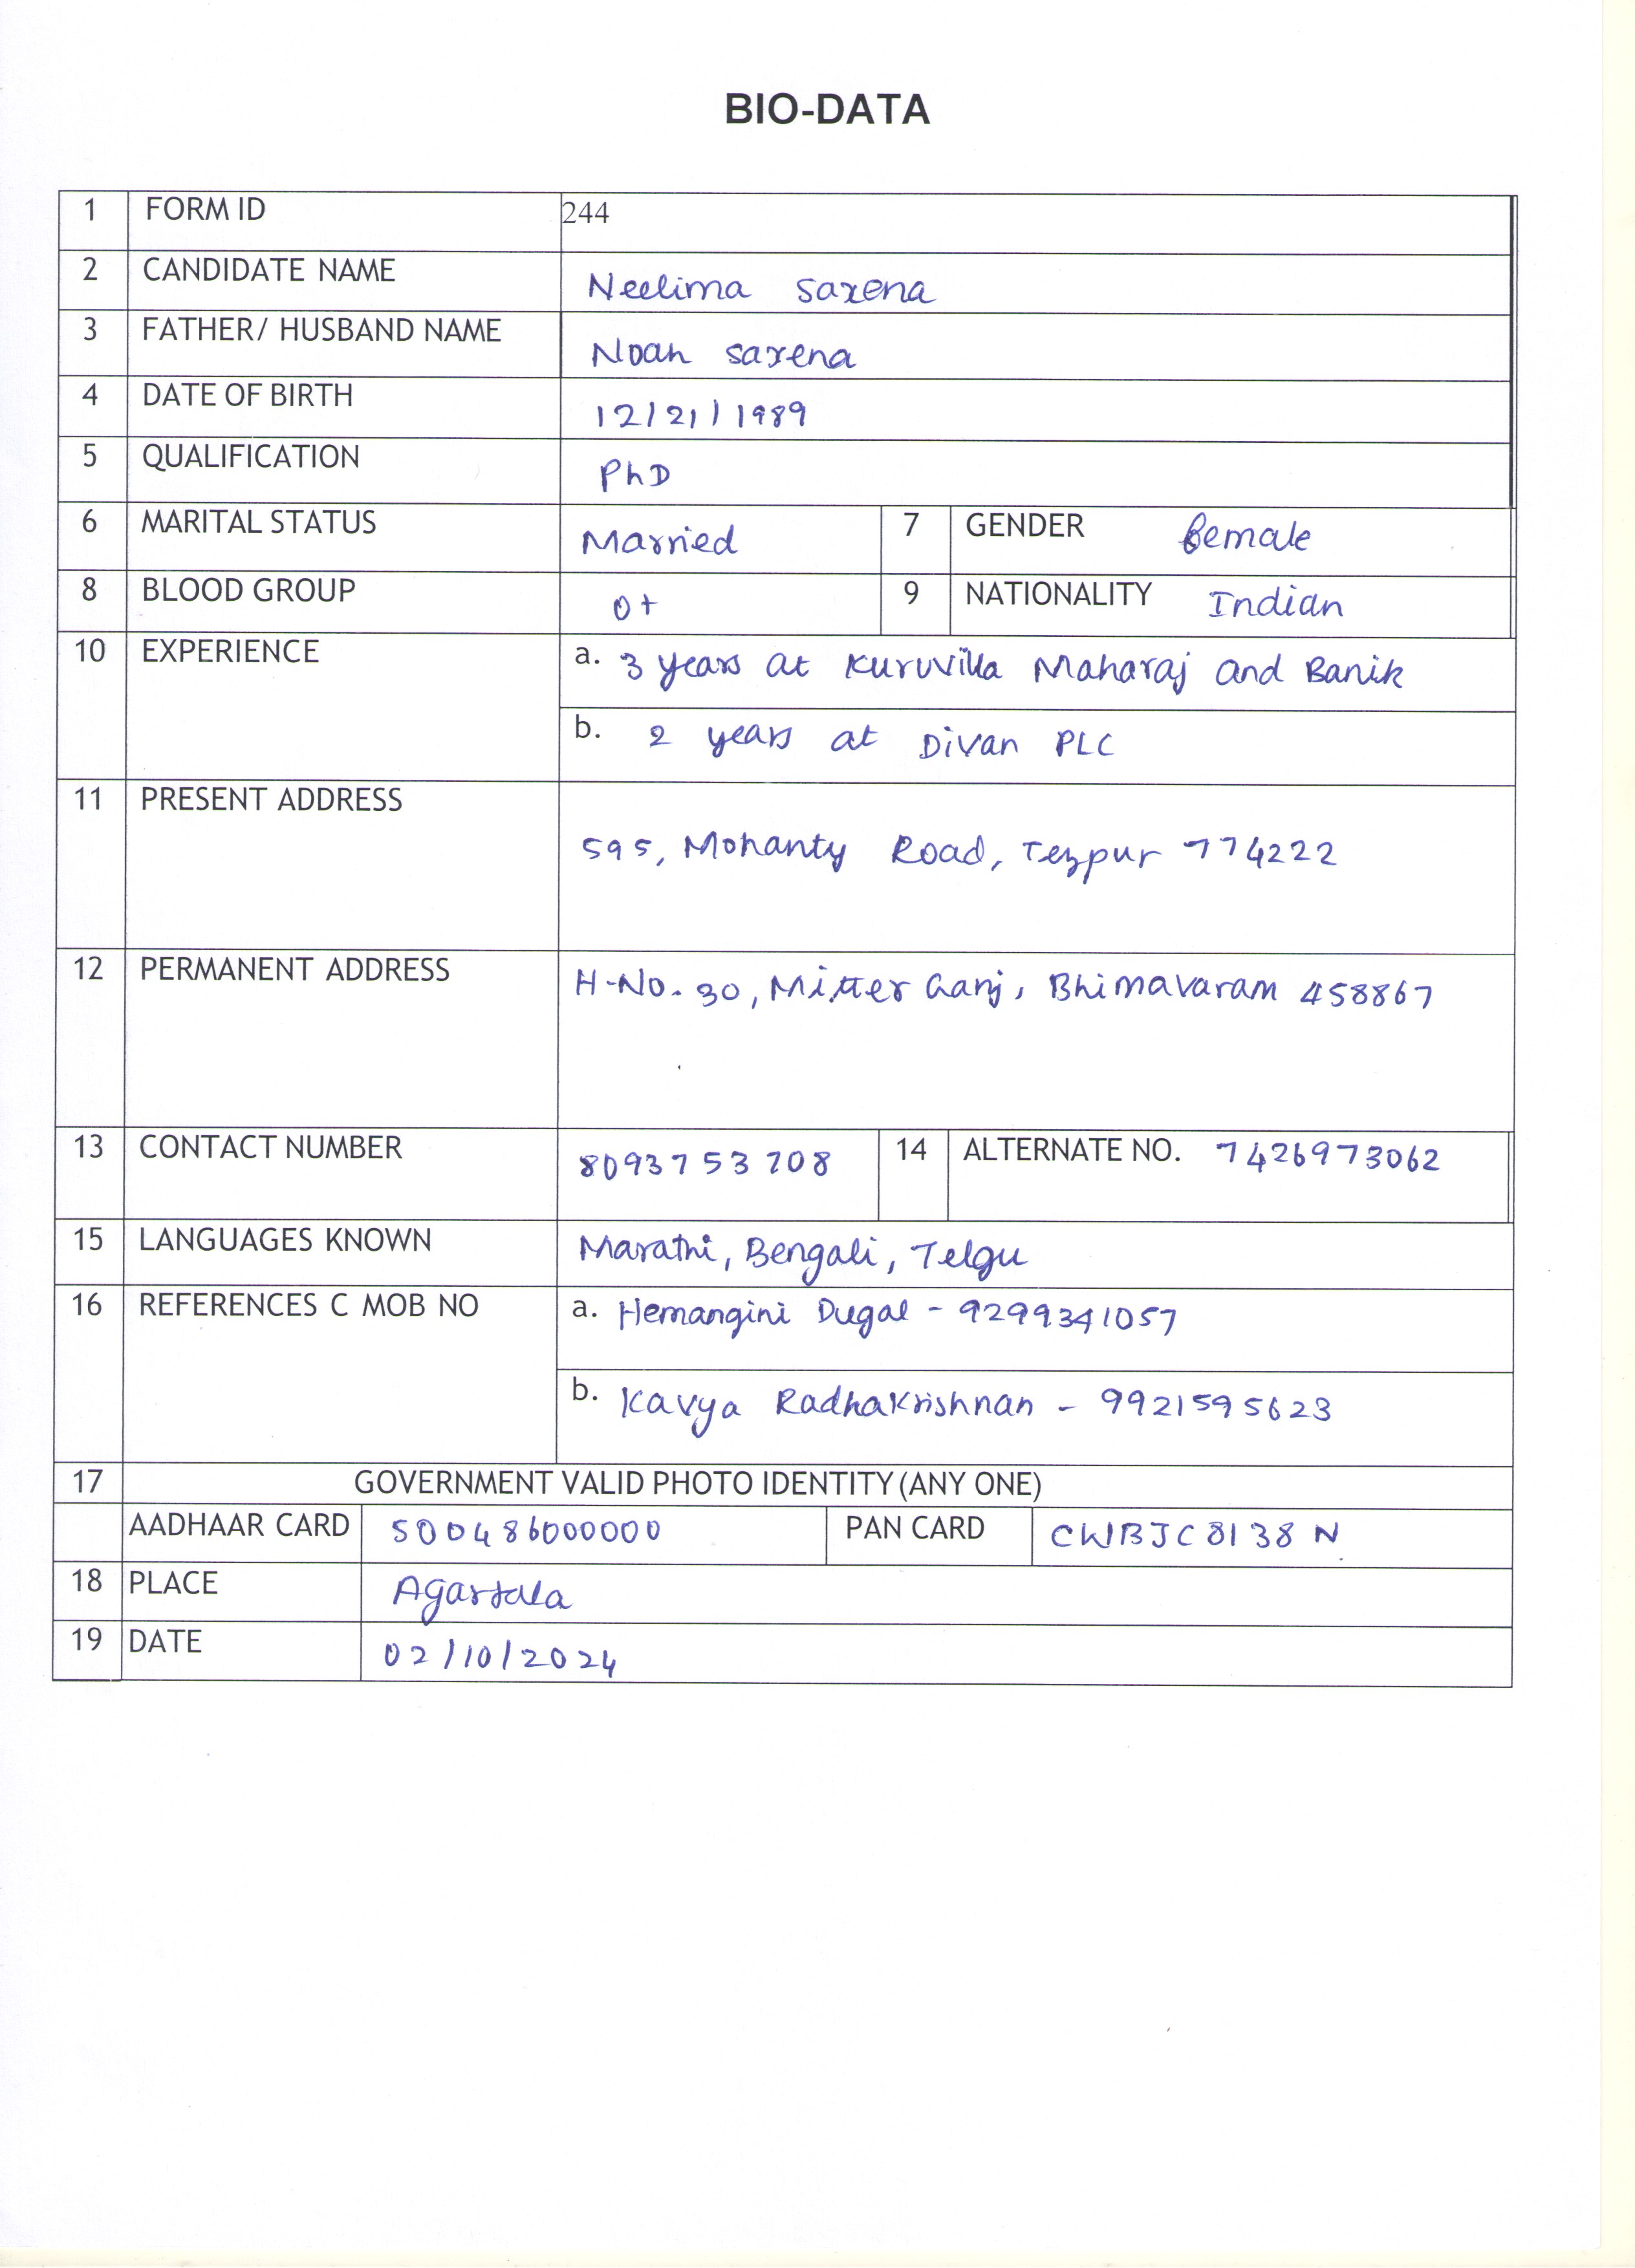 BIO-DATA
1 FORM ID 244
2 CANDIDATE NAME Neelima saxena
3 FATHER/ HUSBAND NAME Noah saxena
4 DATE OF BIRTH 12/21/1989
5 QUALIFICATION PhD
6 MARITAL STATUS Married 7 GENDER female
8 BLOOD GROUP O+ 9 NATIONALITY Indian
10 EXPERIENCE a. 3 years at Kuruvilla Maharaj and Banik
b. 2 years at Divan PLC
11 PRESENT ADDRESS 595, Mohanty Road, Tezpur 774222
12 PERMANENT ADDRESS H-No. 30, Mitter Ganj, Bhimavaram 458867
13 CONTACT NUMBER 8093753708 14 ALTERNATE NO. 7426973062
15 LANGUAGES KNOWN Marathi, Bengali, Telgu
16 REFERENCES C MOB NO a. Hemangini Dugal - 9299341057
b. Kavya Radhakrishnan - 9921595623
17 GOVERNMENT VALID PHOTO IDENTITY (ANY ONE)
AADHAAR CARD 500486000000 PAN CARD CWBJC8138N
18 PLACE Agartala
19 DATE 02/10/2024